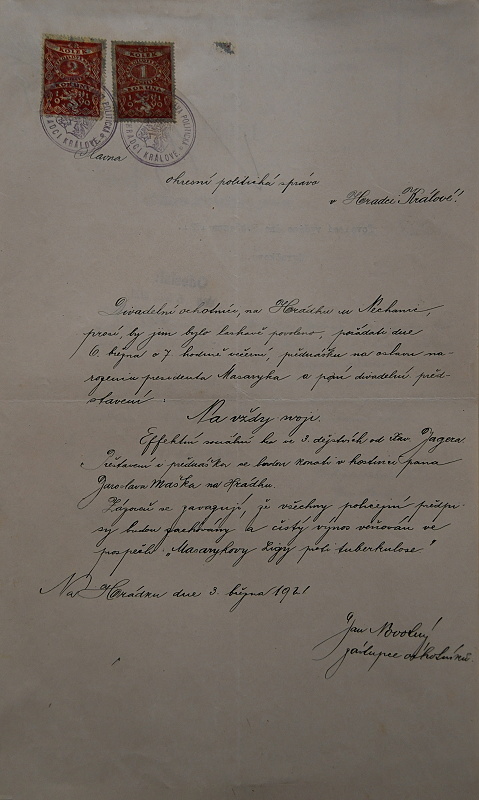 KOLEK KOLEK
2 1
KORUNA KORUNA
POLITICKÁ POLITICKÁ
HRADCI KRÁLOVÉ HRADCI KRÁLOVÉ
Slavná
okresní politická správo
v Hradci Králové!
Divadelní ochotníci, na Hrádku u Nechanic,
prosí, by jim bylo laskavě povoleno, pořádati dne
6. března o 7 hodině večerní, přednášku na oslavu na-
rozenin presidenta Masaryka a pak divadelní před-
stavení:
Na vždy svoje.
Effektní sociální hra ve 3. dějstvích od Jagora.
Představení i přednáška se budou konati v hostinci pana
Jaroslava Maška na Hrádku.
se zavazují, že všechny policejní předpi-
sy budou zachovány a čistý výnos věnován ve
prospěch "Masarykovy Ligy proti tuberkulose."
Na Hrádku dne 3. března 1921
Jan Novotný
zástupce ochotníků.